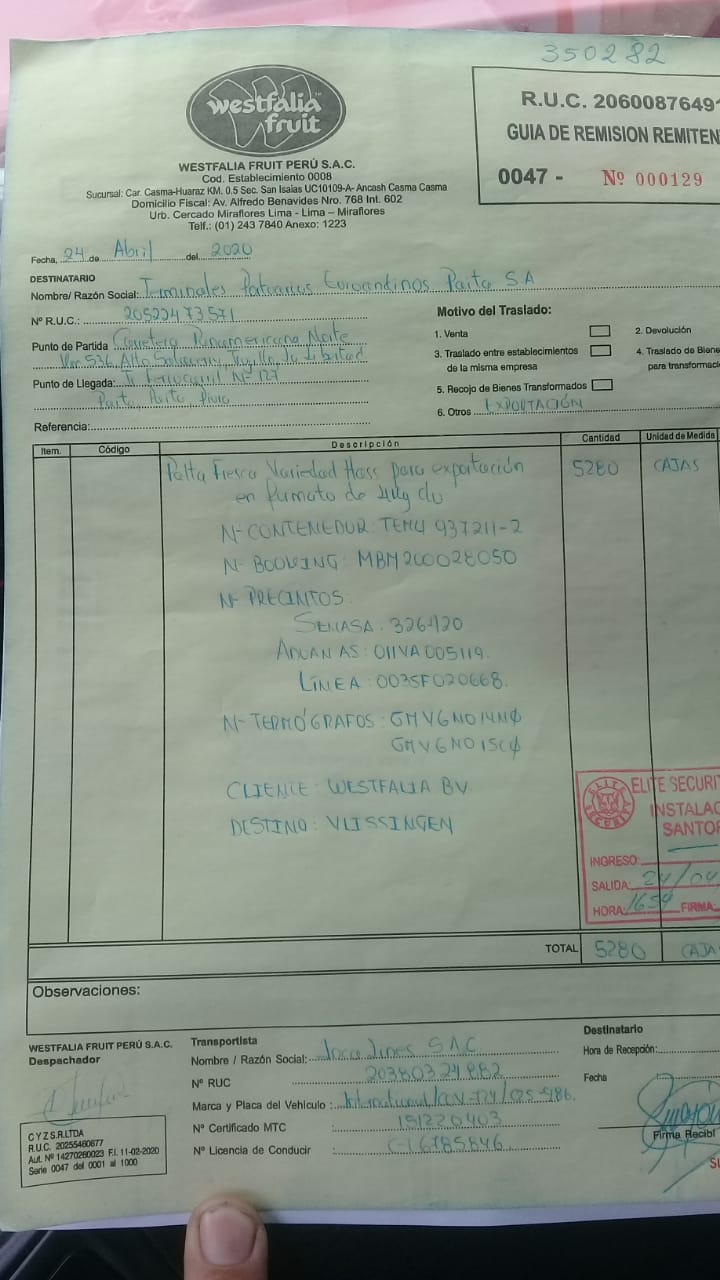 350282
westfalia fruit
WESTFALIA FRUIT PERÚ S.A.C.
Cod. Establecimiento 0008
Sucursal: Car. Casma-Huaraz KM. 0.5 Sec. San Isaias UC10109-A- Ancash Casma Casma
Domicilio Fiscal: Av. Alfredo Benavides Nro. 768 Int. 602
Urb. Cercado Miraflores Lima - Lima – Miraflores
Telf.: (01) 243 7840 Anexo: 1223
R.U.C. 2060087649
GUIA DE REMISION REMITEN
0047 - Nº 000129
Fecha, 24 de Abril del 2020
DESTINATARIO
Nombre/ Razón Social: Terminales Portuarios Euroandinos Paita SA
Nº R.U.C.: 20522473571
Punto de Partida Carretera Panamericana Norte
536 Alto Salaverry, Trujillo, La Libertad
Punto de Llegada: Ferrocarril Nº 127
Paita, Paita, Piura
Referencia:
Motivo del Traslado:
1. Venta
2. Devolución
3. Traslado entre establecimientos
de la misma empresa
4. Traslado de Biene
para transformac
5. Recojo de Bienes Transformados
6. Otros EXPORTACIÓN
Item. Código Descripción Cantidad Unidad de Medida
Palta Fresca Variedad Hass para exportación 5280 CAJAS
en formato de
Nº CONTENEDOR: TEMU 937211-2
Nº BOOKING: MBM200028050
Nº PRECINTOS
SENASA: 326420
ADUANAS: 011VA005119.
LÍNEA: 0035F020668.
Nº TERMÓGRAFOS: GMVGN014N0
GMVGN015C0
CLIENTE: WESTFALIA BV
DESTINO: VLISSINGEN
ELITE SECURIT
INSTALAC
SANTOR
INGRESO:
SALIDA: 24/04
HORA: 1659 FIRMA:
TOTAL 5280 CAJA
Observaciones:
WESTFALIA FRUIT PERÚ S.A.C.
Despachador
Transportista
Nombre / Razón Social: Inca Lines SAC
Nº RUC 20380324882
Marca y Placa del Vehículo: International
Nº Certificado MTC : 151220403
Nº Licencia de Conducir : C-16785846
Destinatario
Hora de Recepción:
Fecha
Firma Recibí
C Y Z S.R.LTDA
R.U.C. 20255460677
Aut. Nº 14270280023 F.I. 11-02-2020
Serie 0047 del 0001 al 1000